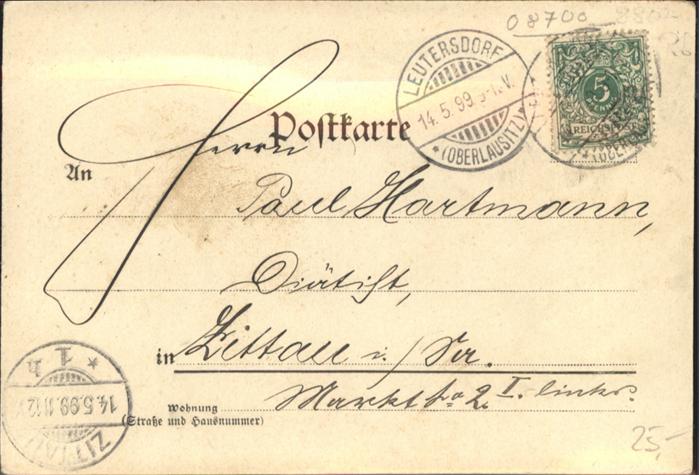 08700
LEUTERSDORF
14.5.99
V.
* (OBERLAUSITZ) *
5
REICHSPOST
Postkarte
Herrn
An
Paul Hartmann,
Diätist,
in Zittau i./Sa.
Marktstr. 2 I. links.
Wohnung
(Straße und Hausnummer)
ZITTAU
14.5.99.11-12V.
* 1 b
25,-